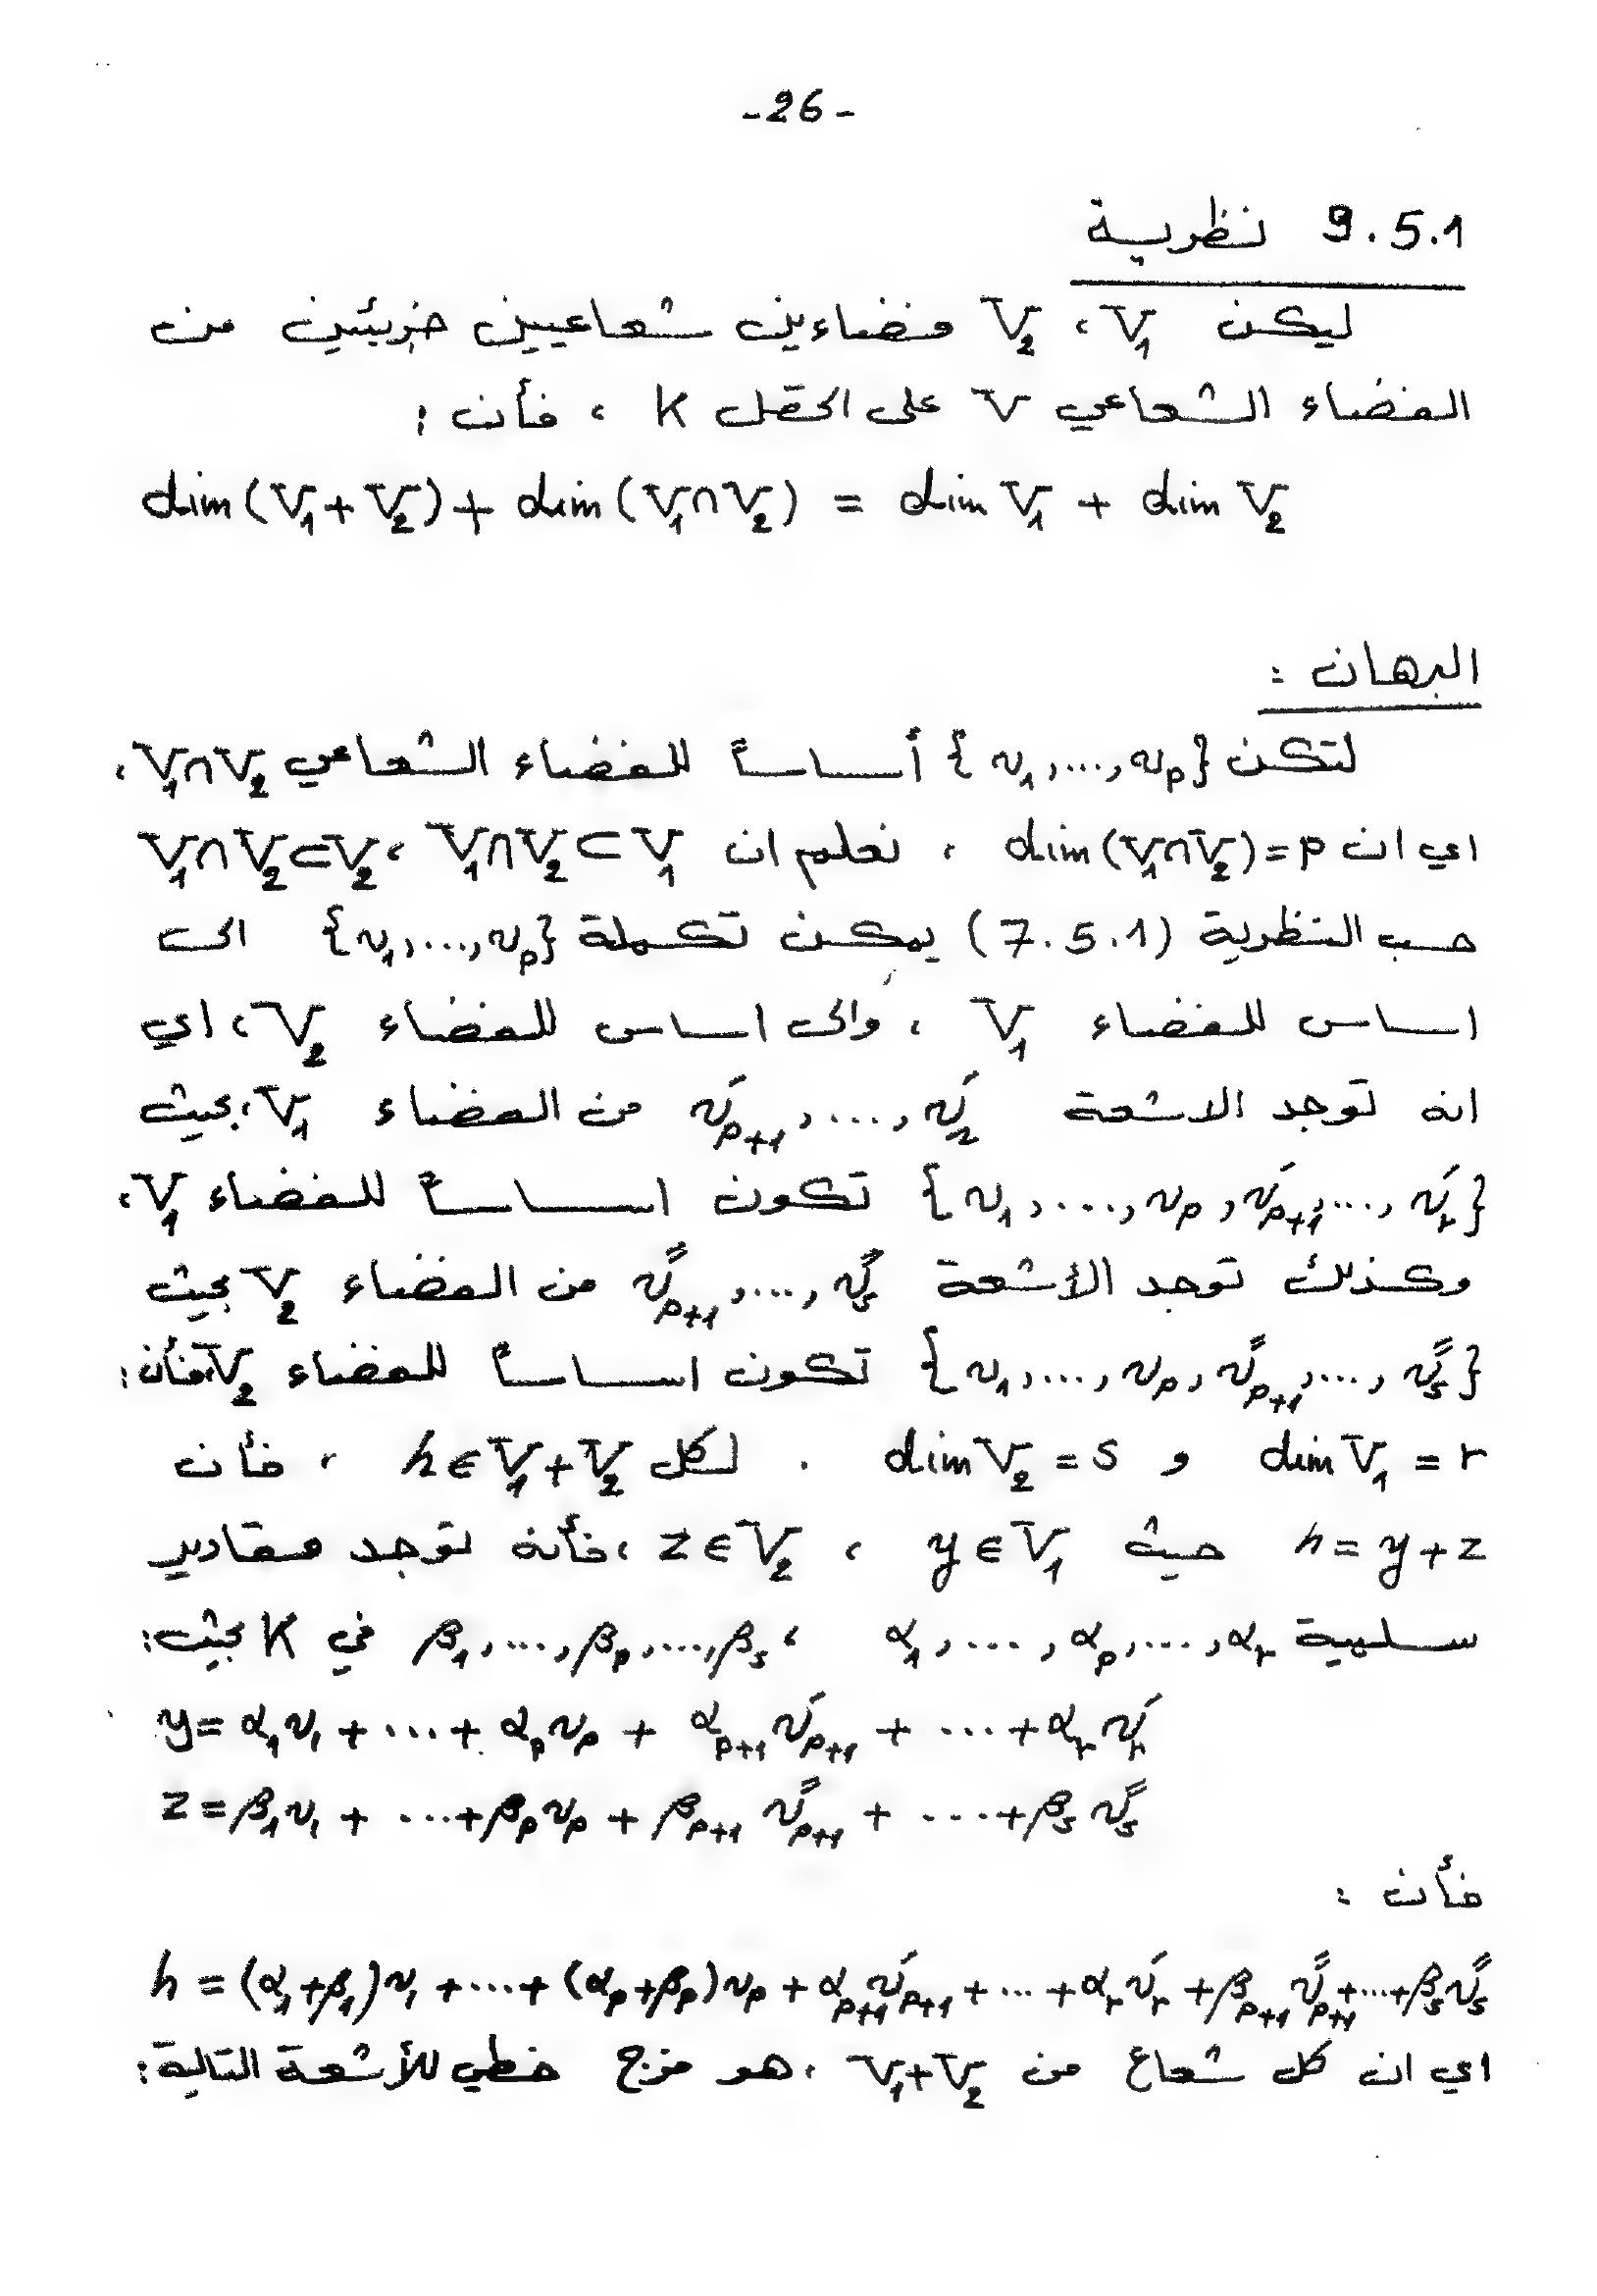 -26-
9.5.1 نظرية
ليكن V₁ ، V₂ فضاءين شعاعيين جزئين من
الفضاء الشعاعي V على الحقل K ، فأن :
dim(V₁+V₂)+dim(V₁∩V₂) = dim V₁ + dim V₂
البرهان :
لتكن {v₁,...,vₚ} أساساً للفضاء الشعاعي V₁∩V₂ ،
اي ان dim(V₁∩V₂)=p ، نعلم ان V₁∩V₂⊂V₁ ، V₁∩V₂⊂V₂
حسب النظرية (7.5.1) يمكن تكملة {v₁,...,vₚ} الى
اساس للفضاء V₁ ، والى اساس للفضاء V₂ ، اي
انه توجد الاشعة v′ₚ₊₁,...,v′ᵣ من الفضاء V₁ ، بحيث
{v₁,....,vₚ,v′ₚ₊₁,...,v′ᵣ} تكون اساساً للفضاء V₁ ،
وكذلك توجد الأشعة v″ₚ₊₁,...,v″ₛ من الفضاء V₂ بحيث
{v₁,...,vₚ,v″ₚ₊₁,...,v″ₛ} تكون اساساً للفضاء V₂ ، فأن :
dim V₁ = r و dim V₂ = s . لكل h∈V₁+V₂ ، فأن
h = y+z حيث y∈V₁ ، z∈V₂ ، فأنه توجد مقادير
سلمية α₁,...,αₚ,...,αᵣ ، β₁,...,βₚ,...,βₛ في K بحيث :
y = α₁v₁ + ... + αₚvₚ + αₚ₊₁v′ₚ₊₁ + ... + αᵣv′ᵣ
z = β₁v₁ + ... + βₚvₚ + βₚ₊₁v″ₚ₊₁ + ... + βₛv″ₛ
فأن :
h = (α₁+β₁)v₁ + ... + (αₚ+βₚ)vₚ + αₚ₊₁v′ₚ₊₁ + ... + αᵣv′ᵣ + βₚ₊₁v″ₚ₊₁ + ... + βₛv″ₛ
اي ان كل شعاع من V₁+V₂ ، هو مزج خطي للأشعة التالية :